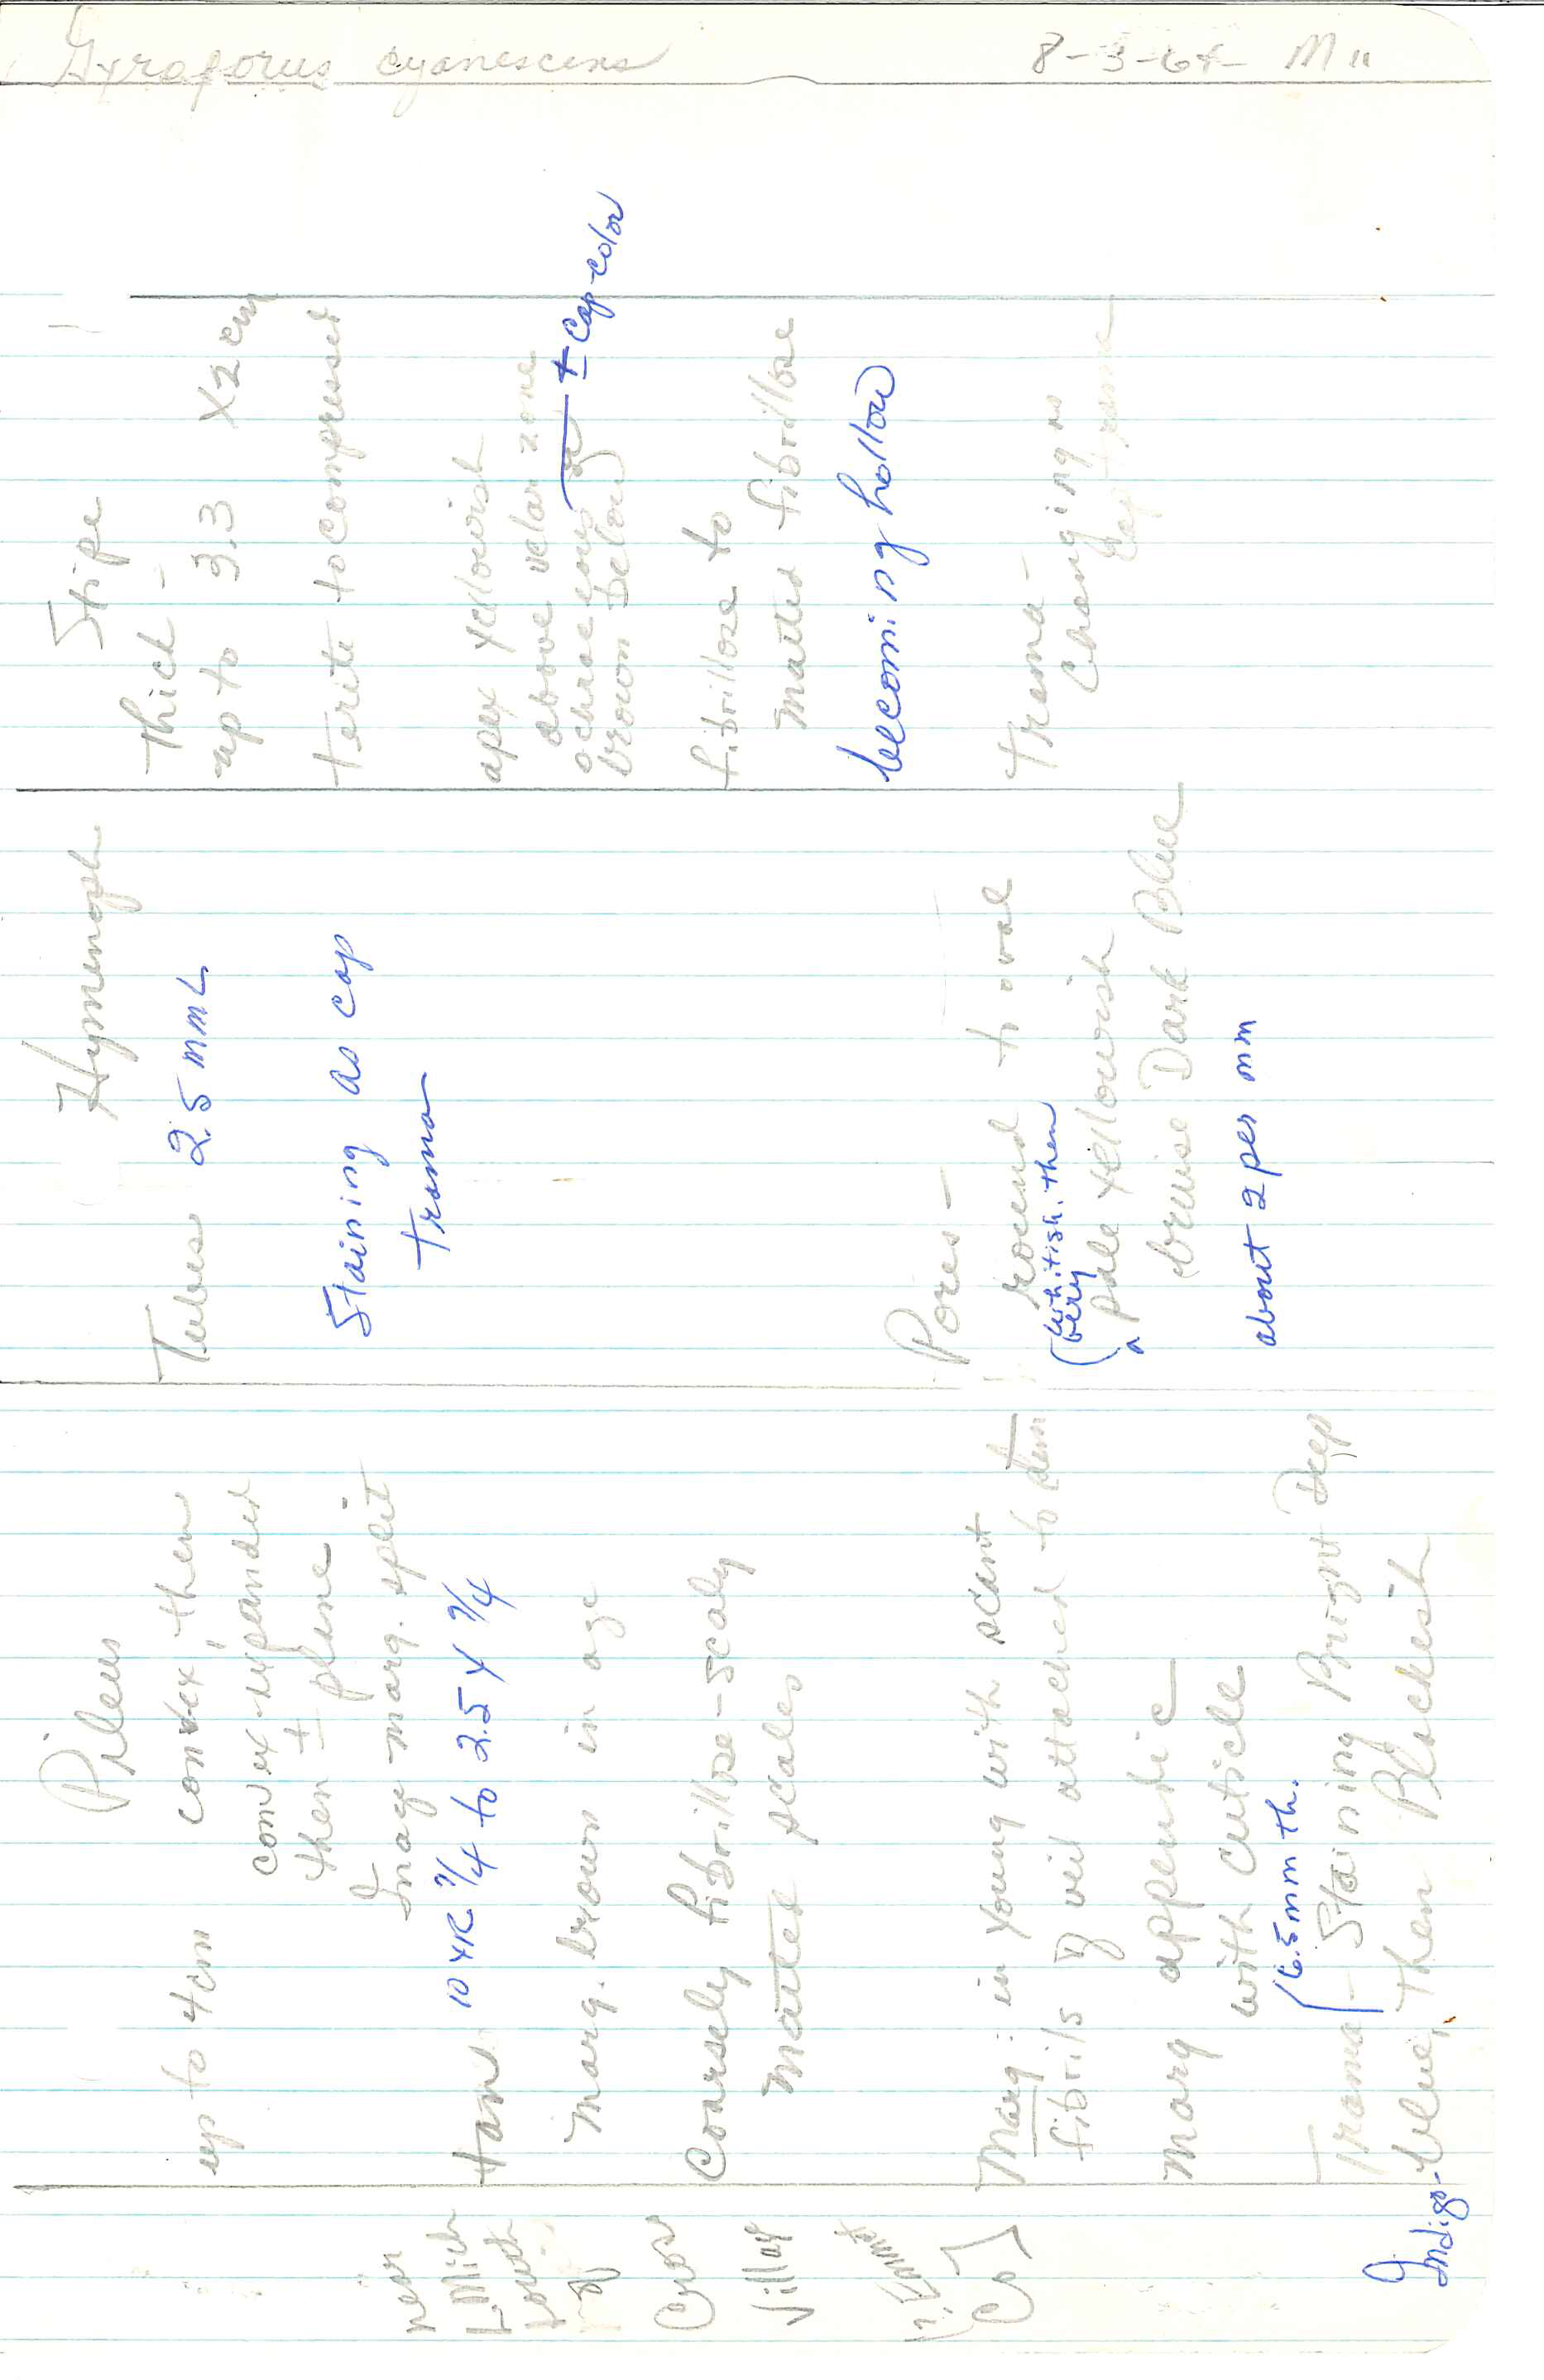 Gyroporus cyanescens 8-3-64 M 11
near
L. Mich
South
of
Cross
Village
(Emmet
Co)
Pileus
up to 4cm convex, then
convex-expanded
then ± plane
In age marg. split
tan 10 YR 7/4 to 2.5 Y 7/4
marg. brown in age
Coarsely fibrillose-scaly
matted scales
Marg: in young with scant
fibrils of veil attached to stem
Marg appendic
with cuticle
6.5 mm th.
Trama - Staining Bright Deep
Indigo-blue, then Blackish
Hymenoph
Tubes 2.5 mm L
Staining as cap
trama
Pores -
round to oval
(whitish, then
very
pale yellowish
bruise Dark Blue
about 2 per mm
Stipe
thick -
up to 3.3 X 2 cm
terete to compressed
apex yellowish
above velar zone
ochraceous
brown below
± cap-color
fibrillose to
matted fibrillose
becoming hollow
trama -
changing as
cap trama